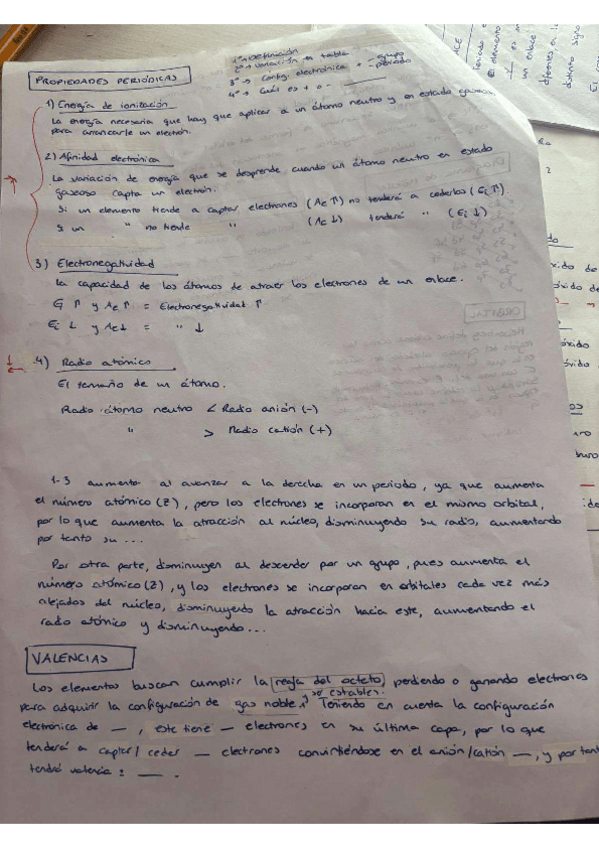 PROPIEDADES PERIÓDICAS
1º → Definición
2º → Variación en tabla - grupo - periodo
3º → Config. electrónica
4º → Cuál es + o -
1) Energía de ionización
La energía necesaria que hay que aplicar a un átomo neutro y en estado gaseoso
para arrancarle un electrón.
2) Afinidad electrónica
La variación de energía que se desprende cuando un átomo neutro en estado
gaseoso capta un electrón.
Si un elemento tiende a captar electrones (Ae ↑) no tenderá a cederlos (Ei ↑)
Si un " no tiende " (Ae ↓) tenderá " (Ei ↓)
3) Electronegatividad
La capacidad de los átomos de atraer los electrones de un enlace.
Ei ↑ y Ae ↑ = Electronegatividad ↑
Ei ↓ y Ae ↓ = " ↓
4) Radio atómico
El tamaño de un átomo.
Radio átomo neutro < Radio anión (-)
" > Radio catión (+)
1-3 aumenta al avanzar a la derecha en un periodo, ya que aumenta
el número atómico (Z), pero los electrones se incorporan en el mismo orbital,
por lo que aumenta la atracción al núcleo, disminuyendo su radio, aumentando
por tanto su ...
Por otra parte, disminuyen al descender por un grupo, pues aumenta el
número atómico (Z), y los electrones se incorporan en orbitales cada vez más
alejados del núcleo, disminuyendo la atracción hacia este, aumentando el
radio atómico y disminuyendo ...
VALENCIAS
Los elementos buscan cumplir la regla del octeto, perdiendo o ganando electrones
para adquirir la configuración de gas noble y ser estables. Teniendo en cuenta la configuración
electrónica de —, este tiene — electrones en su última capa, por lo que
tenderá a captar/ceder — electrones convirtiéndose en el anión/catión —, y por tant
tendrá valencia: —.
ORBITAL